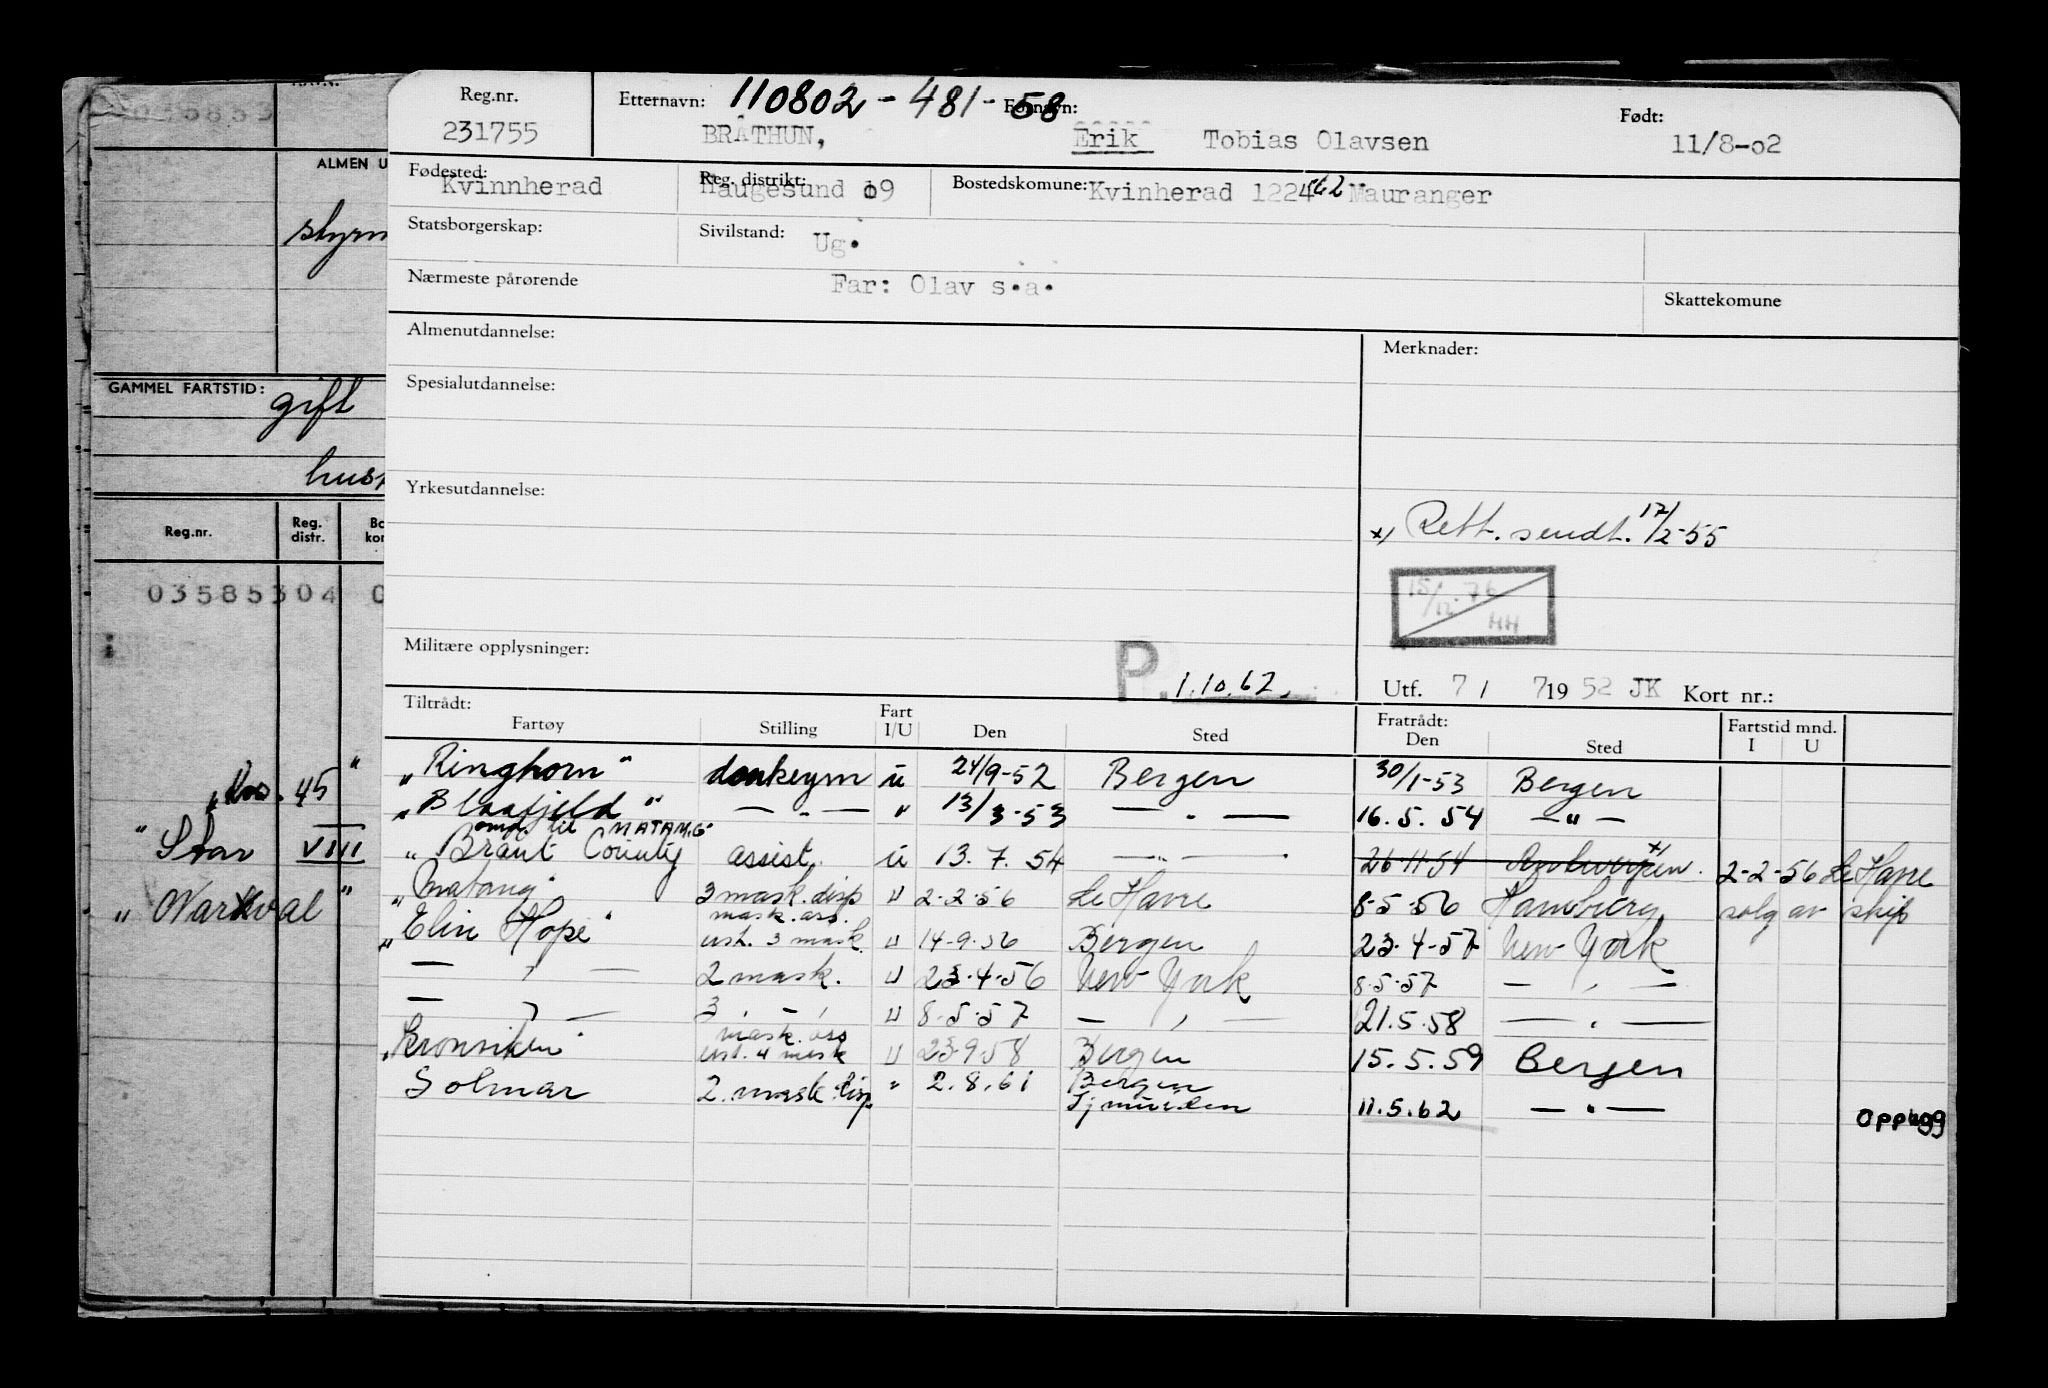 Reg.nr. Etternavn: 110802 - 481 - 58 Fornavn: Født:
231755 BRÅTHUN, Erik Tobias Olavsen 11/8-o2
Fødested: Reg. distrikt: Bostedskomune:
Kvinnherad Haugesund 19 Kvinherad 1224 Mauranger
Statsborgerskap: Sivilstand: Ug.
Nærmeste pårørende Far: Olav s.a. Skattekomune
Almenutdannelse: Merknader:
Spesialutdannelse:
Yrkesutdannelse:
x) Rett. sendt. 17/2-55
15/12.76
HH
Militære opplysninger: P. 1.10.62.
Utf. 7 / 7 19 52 JK Kort nr.:
Tiltrådt: Fart Fratrådt: Fartstid mnd.
Fartøy Stilling I/U Den Sted Den Sted I U
"Ringhorn" donkeym u 24/9-52 Bergen 30/1-53 Bergen
"Blaafjeld" — " — " 13/3-53 — " — 16.5.54 — " —
omd. til MATANG
"Brant County assist. u 13.7.54 — " — 26-11-54 Antwerpen. x) 2-2-56 Le Havre
"Matang" 3 mask. disp u 2-2-56 Le Havre 8-5-56 Hamburg solg av skip
mask. ass.
"Elin Hope" ust. 3 mask. u 14-9-56 Bergen 23-4-57 New York
— " — 2 mask. u 23-4-56 New York 8-5-57 — " —
— " — 3 — " — u 8-5-57 — " — 21.5.58 — " —
mask. ass
"Kronviken" ust. 4 mask u 23-9-58 Bergen 15.5.59 Bergen
Solmar 2. mask. disp " 2.8.61 Bergen
Ijmuiden 11.5.62 — " — Opplagg
035853
ALMEN U
styrm
GAMMEL FARTSTID:
gift
Reg.nr. Reg. distr. Bo kom
03585304 0
. 45 "
" Star VIII
" Narkval "